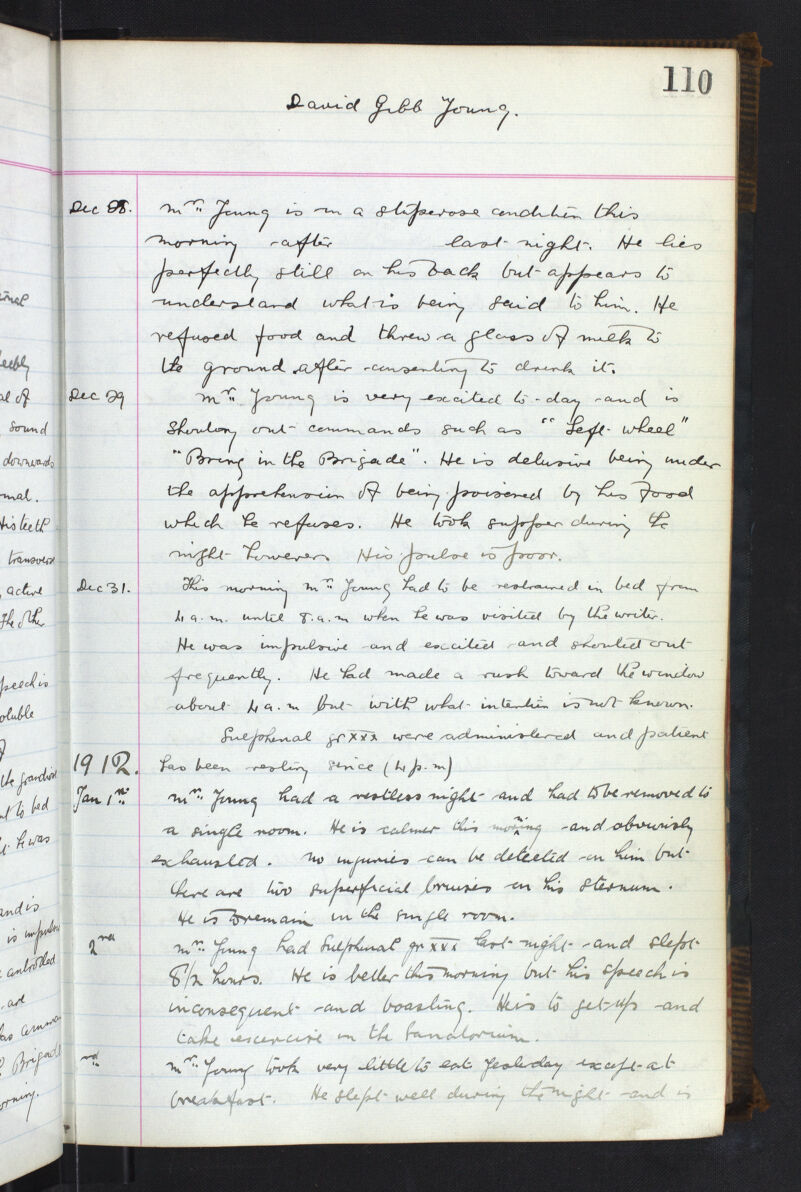 110
David Gibb Young.
Dec 28. Mr. Young is in a stuperose condition this
morning after last night. He lies
perfectly still on his back but appears to
understand what is being said to him. He
refused food and threw a glass of milk to
the ground after consenting to drink it.
Dec 29 Mr. Young is very excited to-day and is
shouting out commands such as "Left wheel"
"Bring in the Brigade". He is delusive being under
the apprehension of being poisoned by his food
which he refuses. He took supper during the
night however. His pulse is poor.
Dec 31. This morning Mr. Young had to be restrained in bed from
4 a.m. until 8.a.m when he was visited by the writer.
He was impulsive and excited and shouted out
frequently. He had made a rush toward the window
about 4 a.m but with what intention is not known.
Sulphonal gr xxx were administered and patient
1912. has been resting since (4 p.m)
Jan 1st Mr. Young had a restless night and had to be removed to
a single room. He is calmer this morning and obviously
exhausted. No injuries can be detected on him but
there are two superficial bruises on his sternum.
He is to remain in the single room.
2nd Mr. Young had Sulphonal gr xxx last night and slept
8½ hours. He is better this morning but his speech is
inconsequent and boasting. He is to get up and
take exercise in the Sanatorium.
rd Mr. Young took very little to eat yesterday except at
breakfast. He slept well during the night and is
eebly
al of
sound
downwards
mal.
His teeth
transverse
active
The other
speech is
oluble
the grandios
nt to bed
t he was
and is
is impuls
are
Brigade
orning.